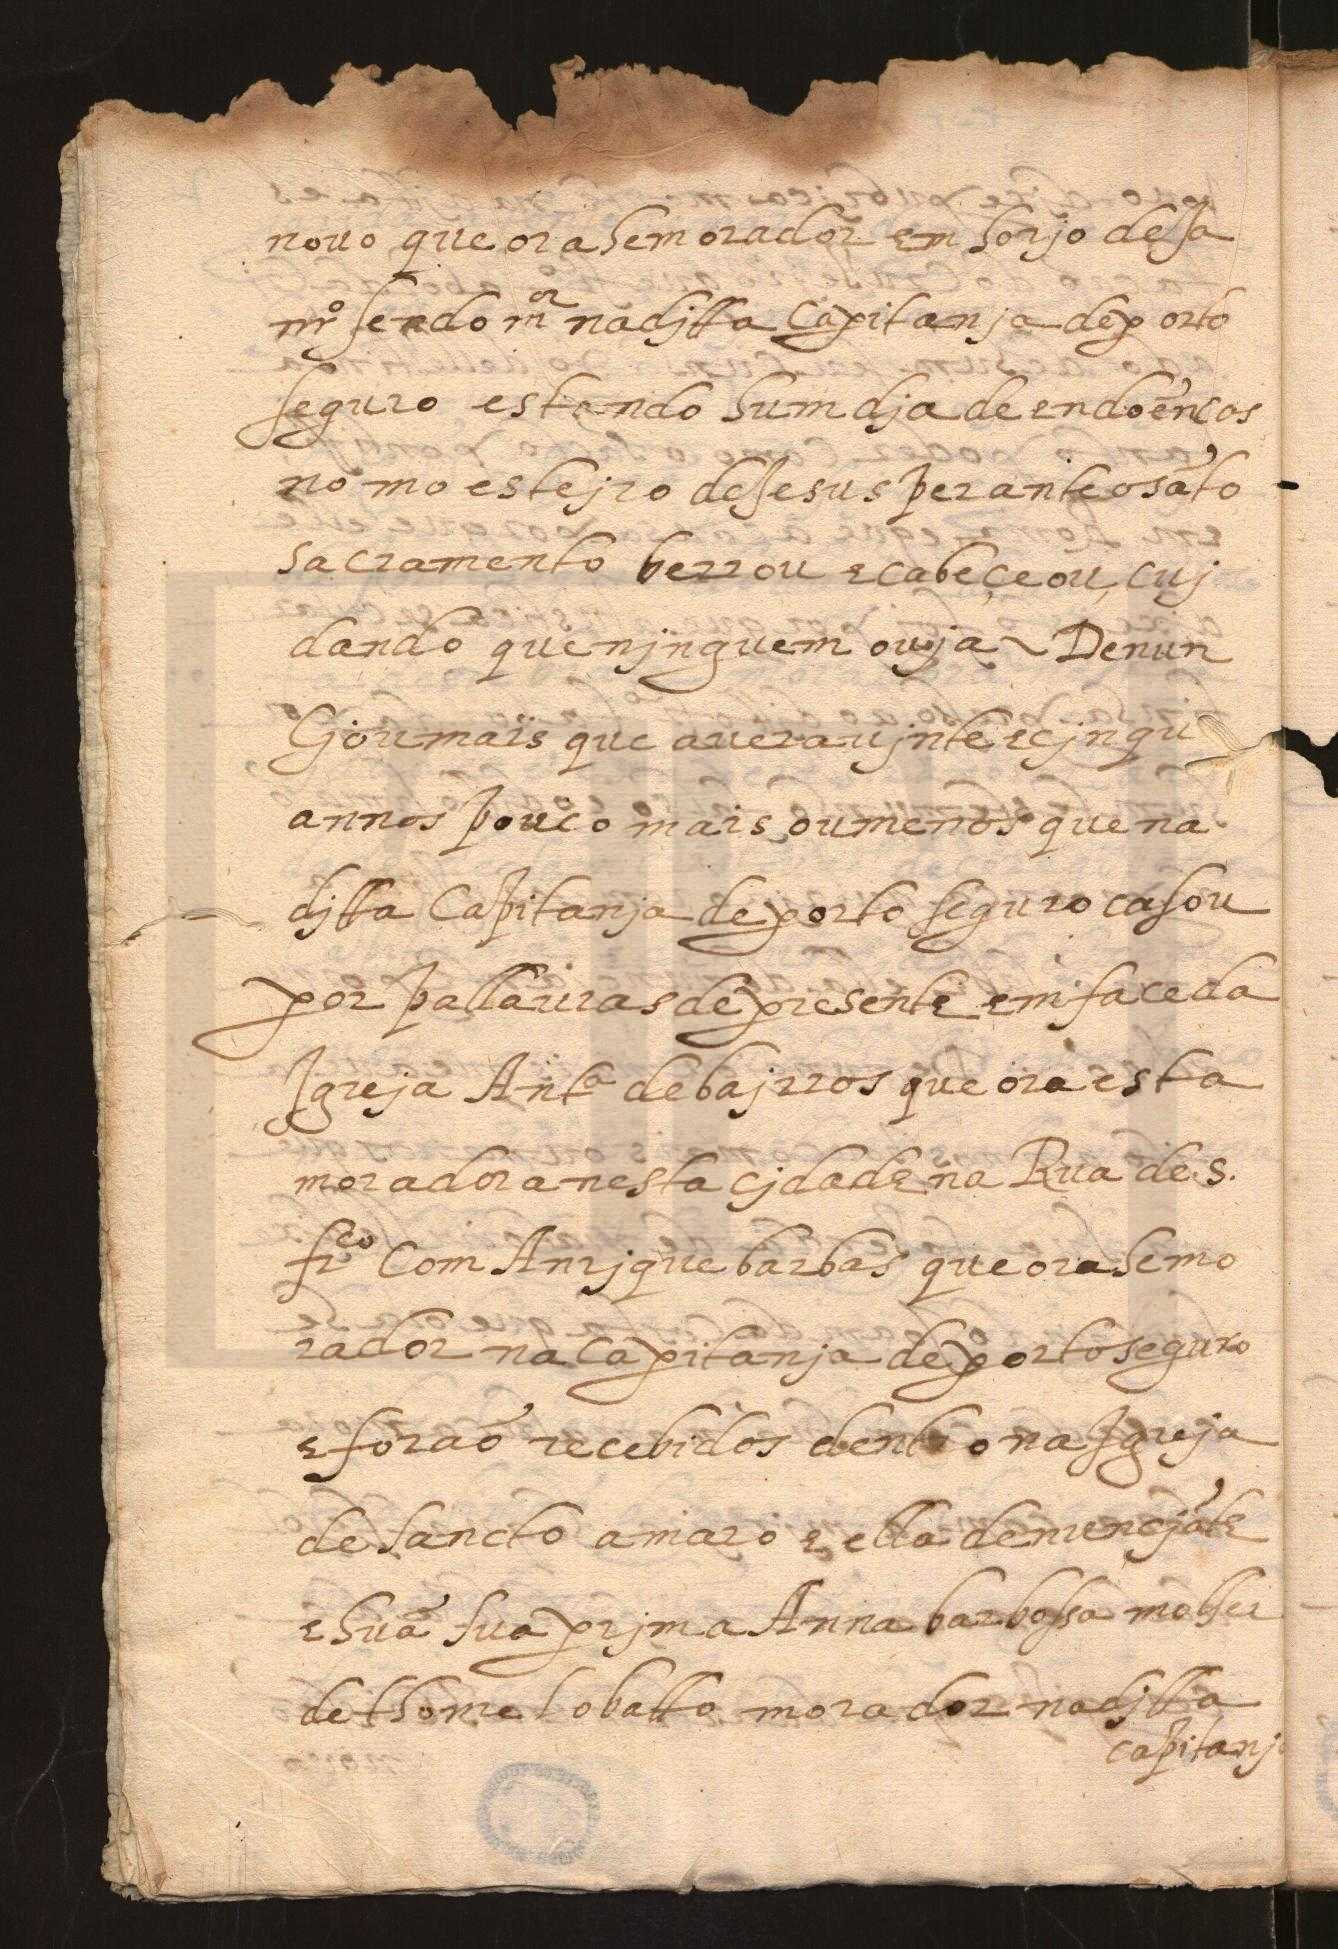 nouo que ora he morador em Sorjo de Sa
mº sendo mor na djtta Capitanja de porto
seguro estando hum dja de endoenças
no moestejro de Jesus perante o sãto
sacramento berrou e cabeçeou, cuj
dando que njnguem ouuja ~ Denun
Cjou mais que auera ujnte e cjnqu
annos pouco mais ou menos que na
djtta Capitanja de porto seguro casou
por pallauras de presente em face da
Igreja Antª de bajrros que ora esta
moradora nesta cjdade na Rua de S.
frco Com Anrjque barbas que ora he mo
rador na Capitanja de porto seguro
e forão recebidos dentro na Igreja
de sancto amaro e ella denuncjãte
e huã sua prjma Anna barbossa molher
de thome lobatto morador na djtta
capitanj